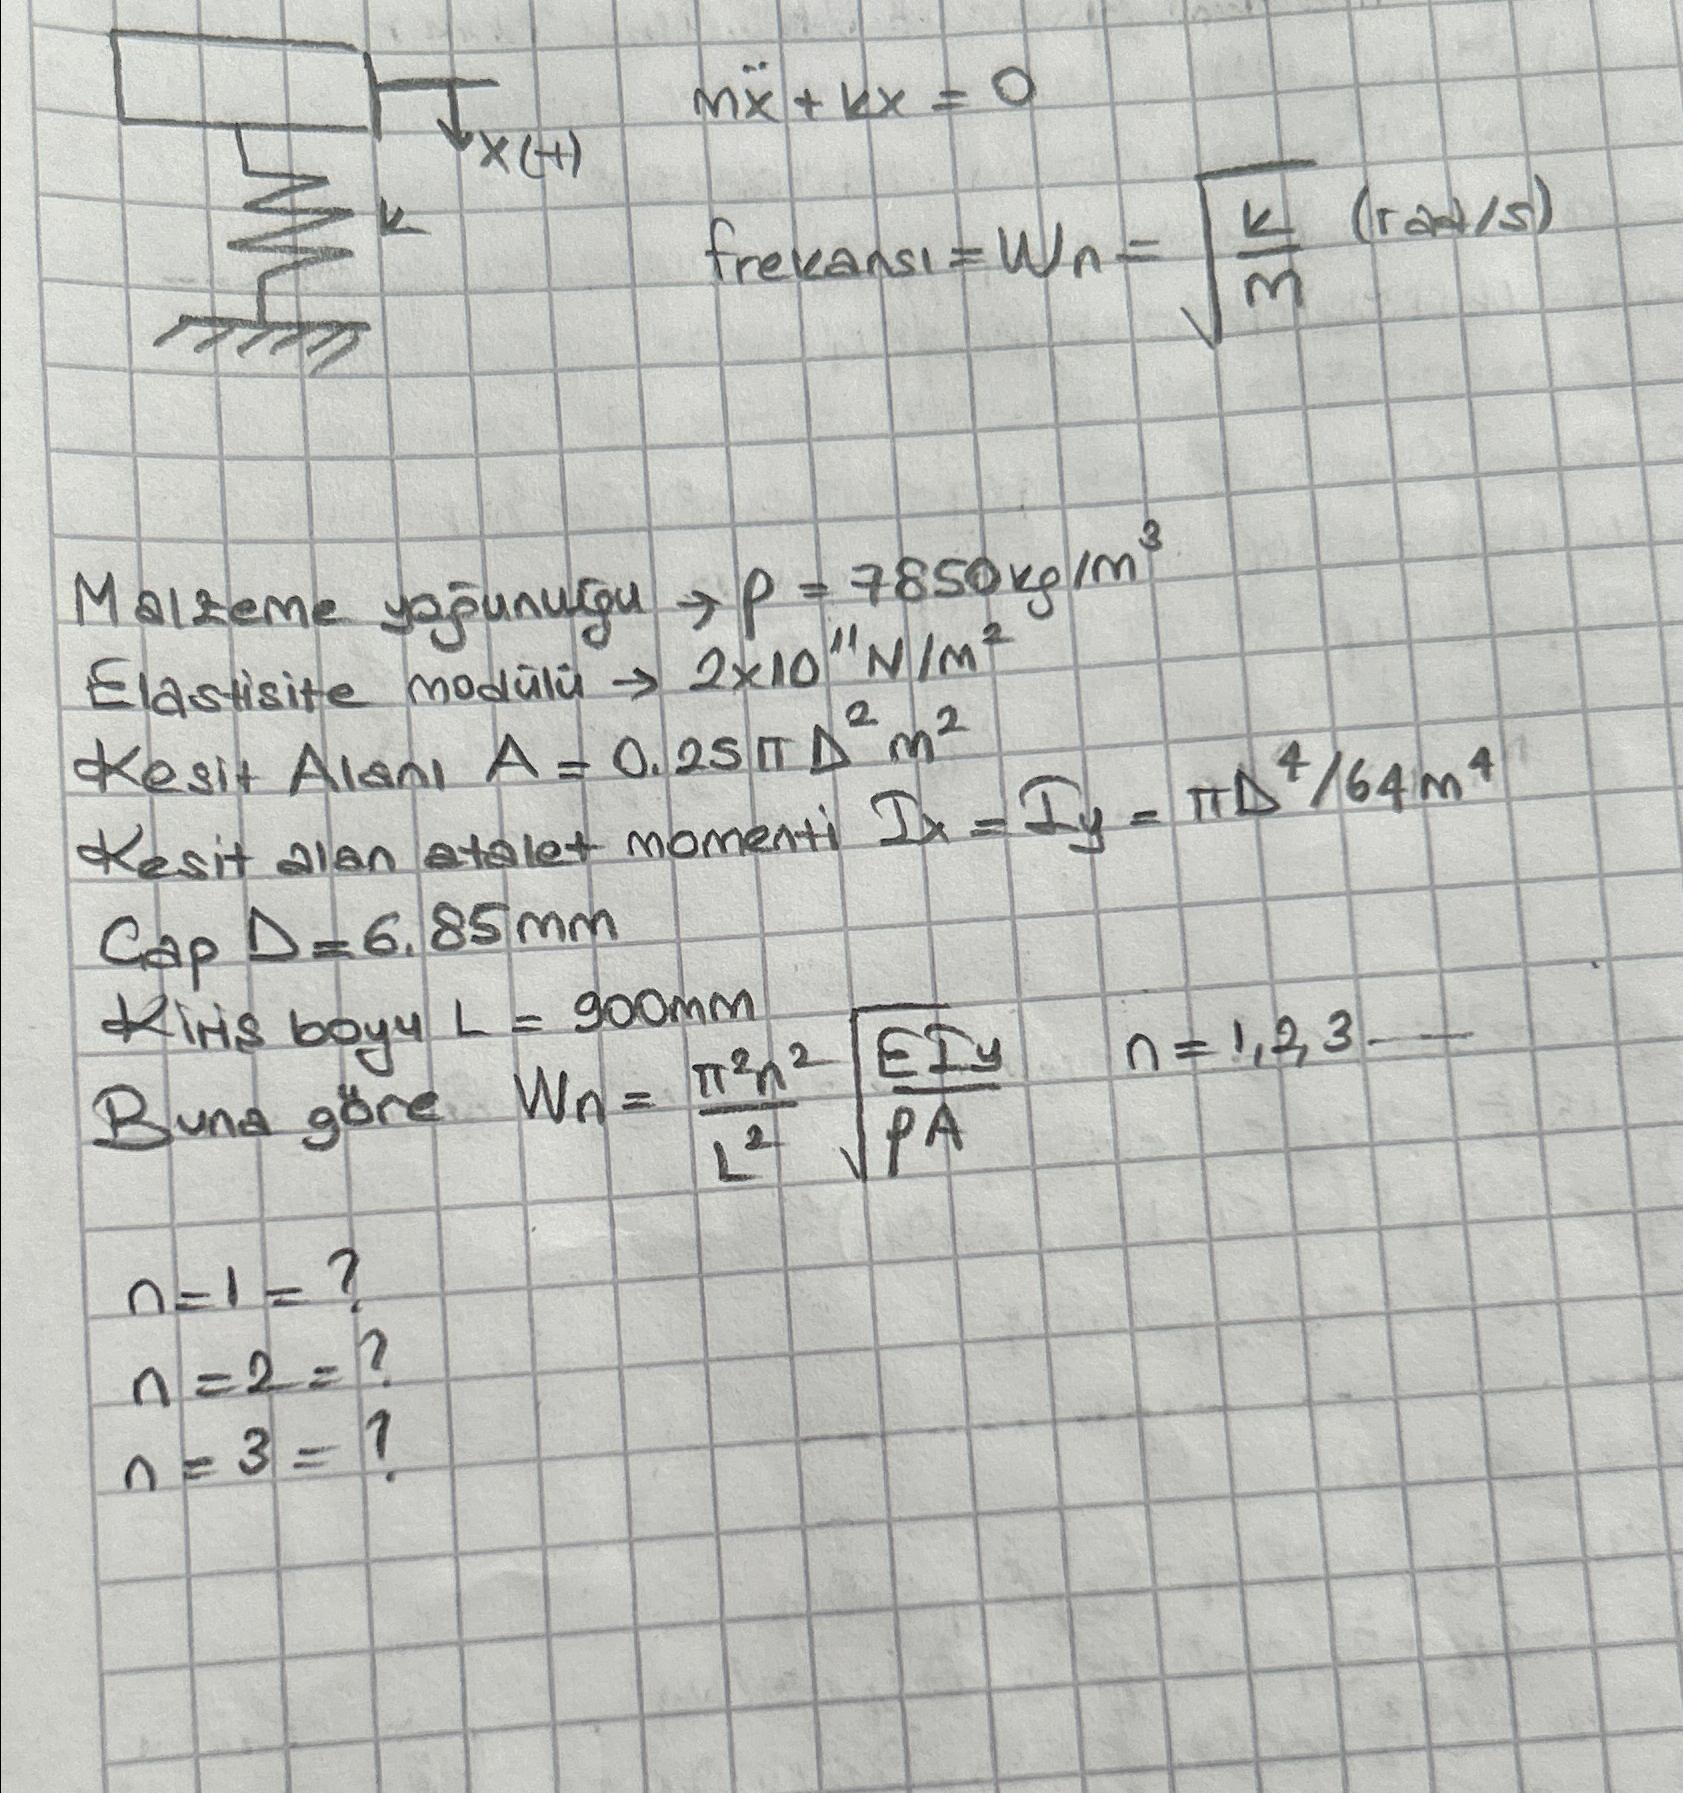 mẍ + kx = 0
x(t)
k
frekansı = Wn = √(k/m) (rad/s)
Malzeme yoğunuğu → ρ = 7850kg/m³
Elastisite modülü → 2x10¹¹N/m²
Kesit Alanı A = 0.25πD²m²
Kesit alan atalet momenti Ix = Iy = πD⁴/64m⁴
Cap D = 6.85mm
Kiriş boyu L = 900mm
Buna göre Wn = π²n²/L² √(EIy/ρA) n = 1,2,3 ----
n=1 = ?
n=2 = ?
n=3 = ?